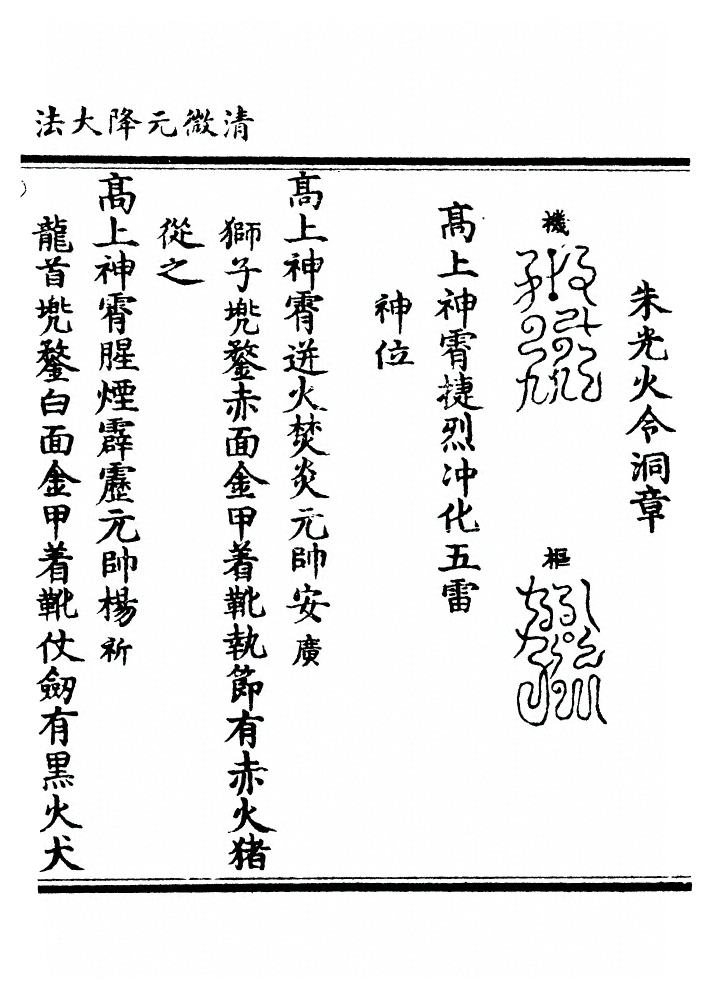 清微元降大法
朱光火令洞章
機
樞
高上神霄捷烈冲化五雷
神位
髙上神霄迸火焚炎元帥安廣
獅子兠鍪赤面金甲着靴執節有赤火猪
從之
髙上神霄腥煙霹靂元帥楊祈
龍首兠鍪白面金甲着靴仗劒有黒火犬